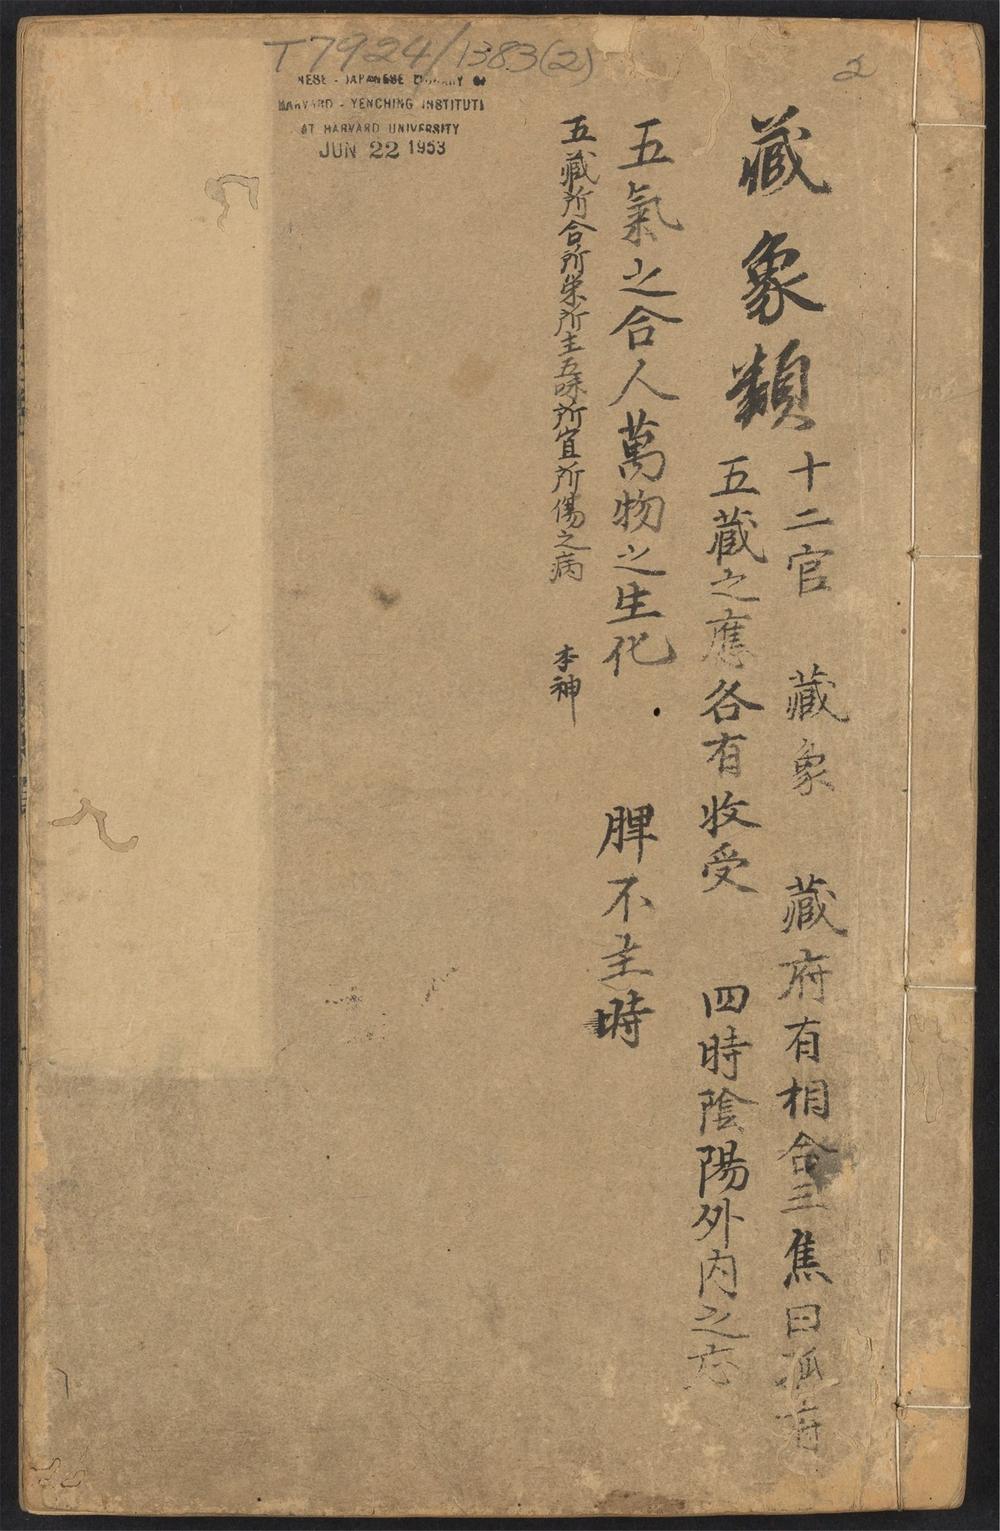 T7924/1383(2)
2
CHINESE-JAPANESE LIBRARY OF
HARVARD-YENCHING INSTITUTE
AT HARVARD UNIVERSITY
JUN 22 1953
藏象類
十二官 藏象 藏府有相合三焦曰孤府
五藏之應各有收受 四時陰陽外内之應
五氣之合人萬物之生化 脾不主時
五藏所合所榮所主五味所宜所傷之病 本神